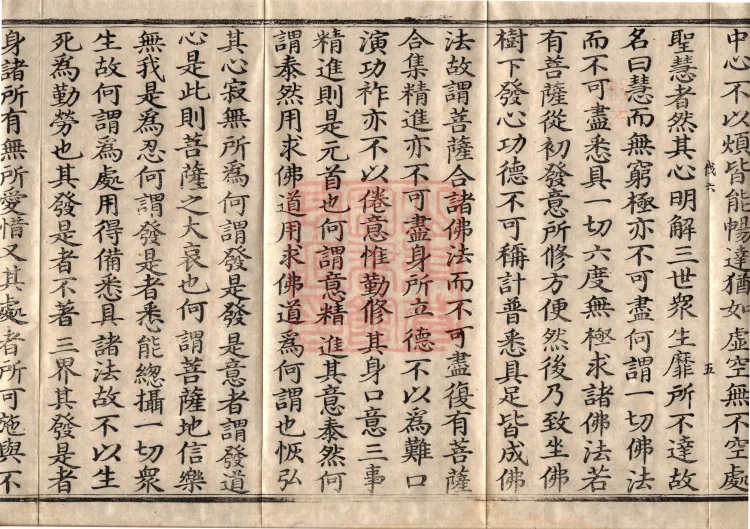 中心不以煩皆能暢達猶如虛空無不空處
聖慧者然其心明解三世衆生靡所不達故
伐六
五
名曰慧而無窮極亦不可盡何謂一切佛法
而不可盡悉具一切六度無極求諸佛法若
有菩薩從初發意所修方便然後乃致坐佛
樹下發心功德不可稱計普悉具足皆成佛
法故謂菩薩合諸佛法而不可盡復有菩薩
合集精進亦不可盡身所立德不以爲難口
演功祚亦不以倦意惟勤修其身口意三事
精進則是元首也何謂意精進其意泰然何
謂泰然用求佛道用求佛道爲何謂也恢弘
其心寂無所爲何謂發是發是意者謂發道
心是此則菩薩之大哀也何謂菩薩地信樂
無我是爲忍何謂發是者悉能總攝一切衆
生故何謂爲處用得備悉具諸法故不以生
死為勤勞也其發是者不著三界其發是者
身諸所有無所愛惜又其處者所可施與不